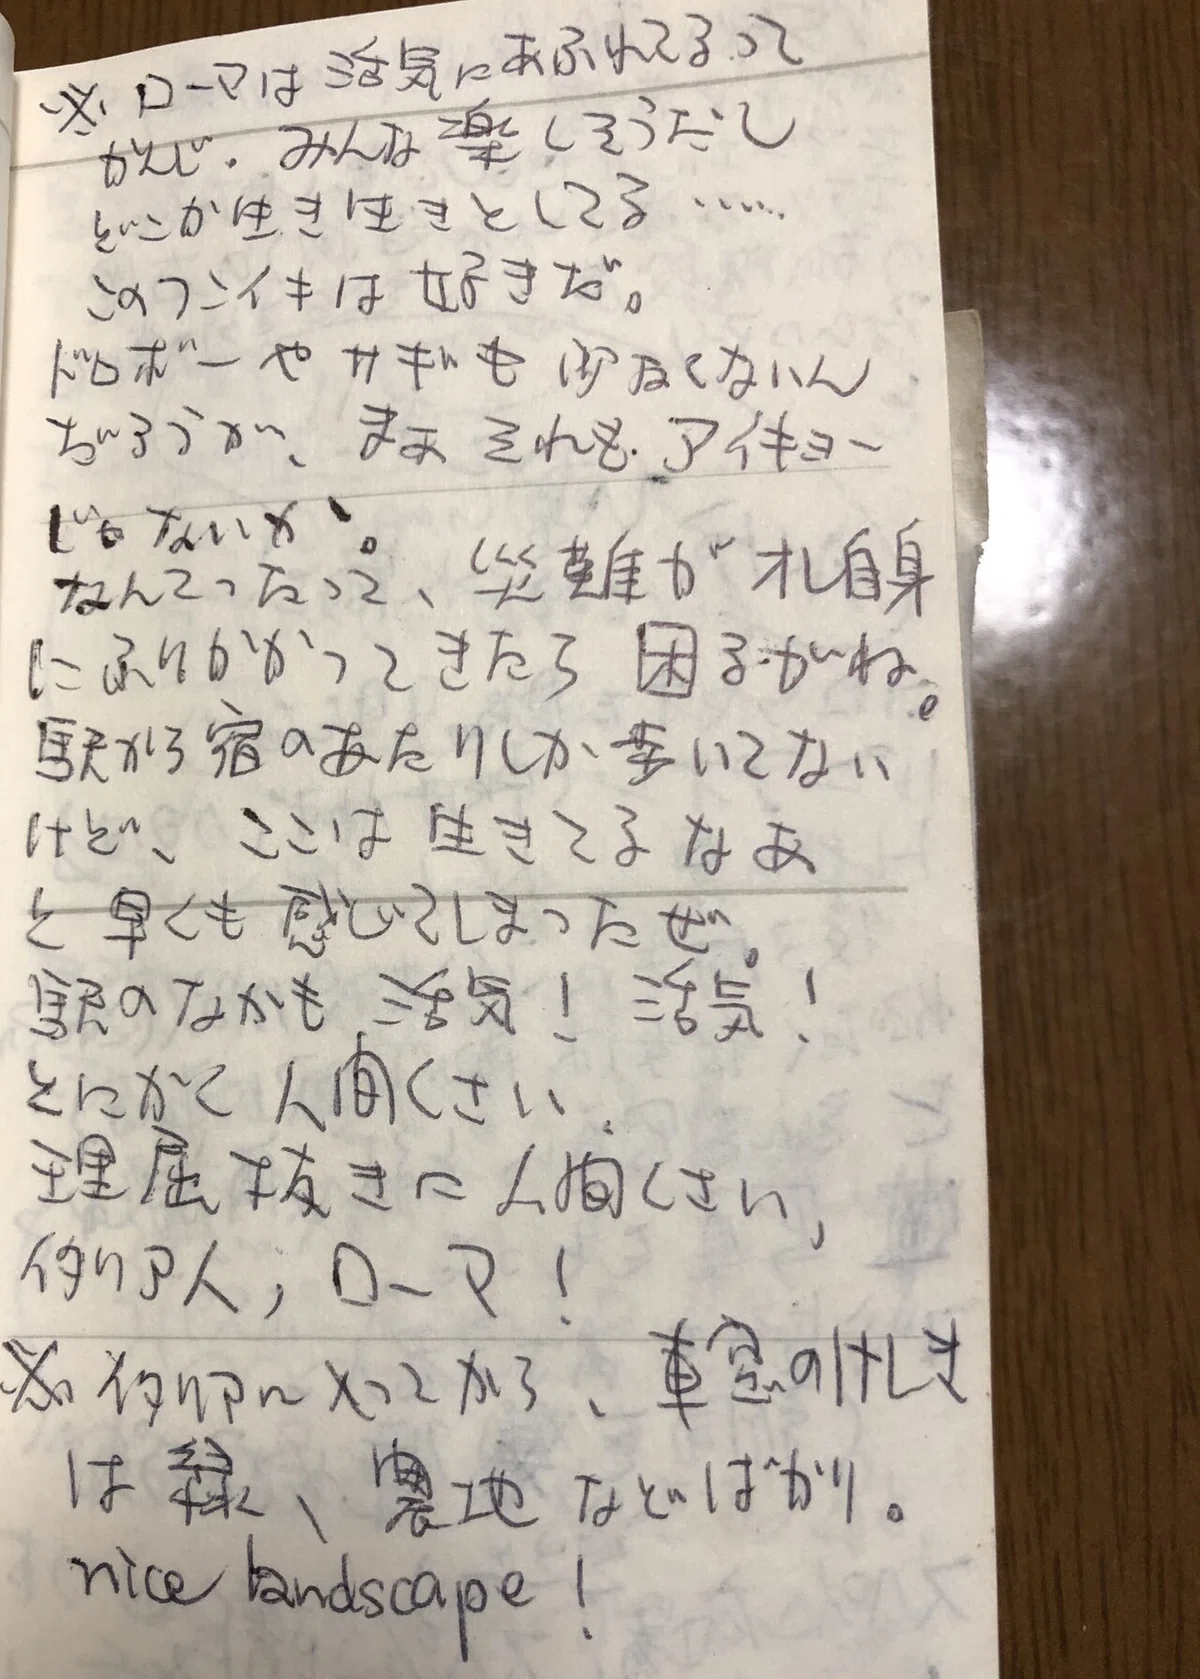 ※ ローマは活気にあふれてるって
かんじ。みんな楽しそうだし
どこか生き生きとしてる……
このフンイキは好きだ。
ドロボーやサギも少なくないん
だろうが、まぁそれも アイキョー
じゃないか。
なんてったって、災難がオレ自身
にふりかかってきたら困るがね。
駅から宿のあたりしか歩いてない
けど、ここは生きてるなあ
と早くも感じてしまったぜ。
駅のなかも活気！活気！
とにかく人間くさい、
理屈抜きに人間くさい、
イタリア人，ローマ！
※ イタリアに入ってから、車窓のけしき
は緑、農地などばかり。
nice landscape！